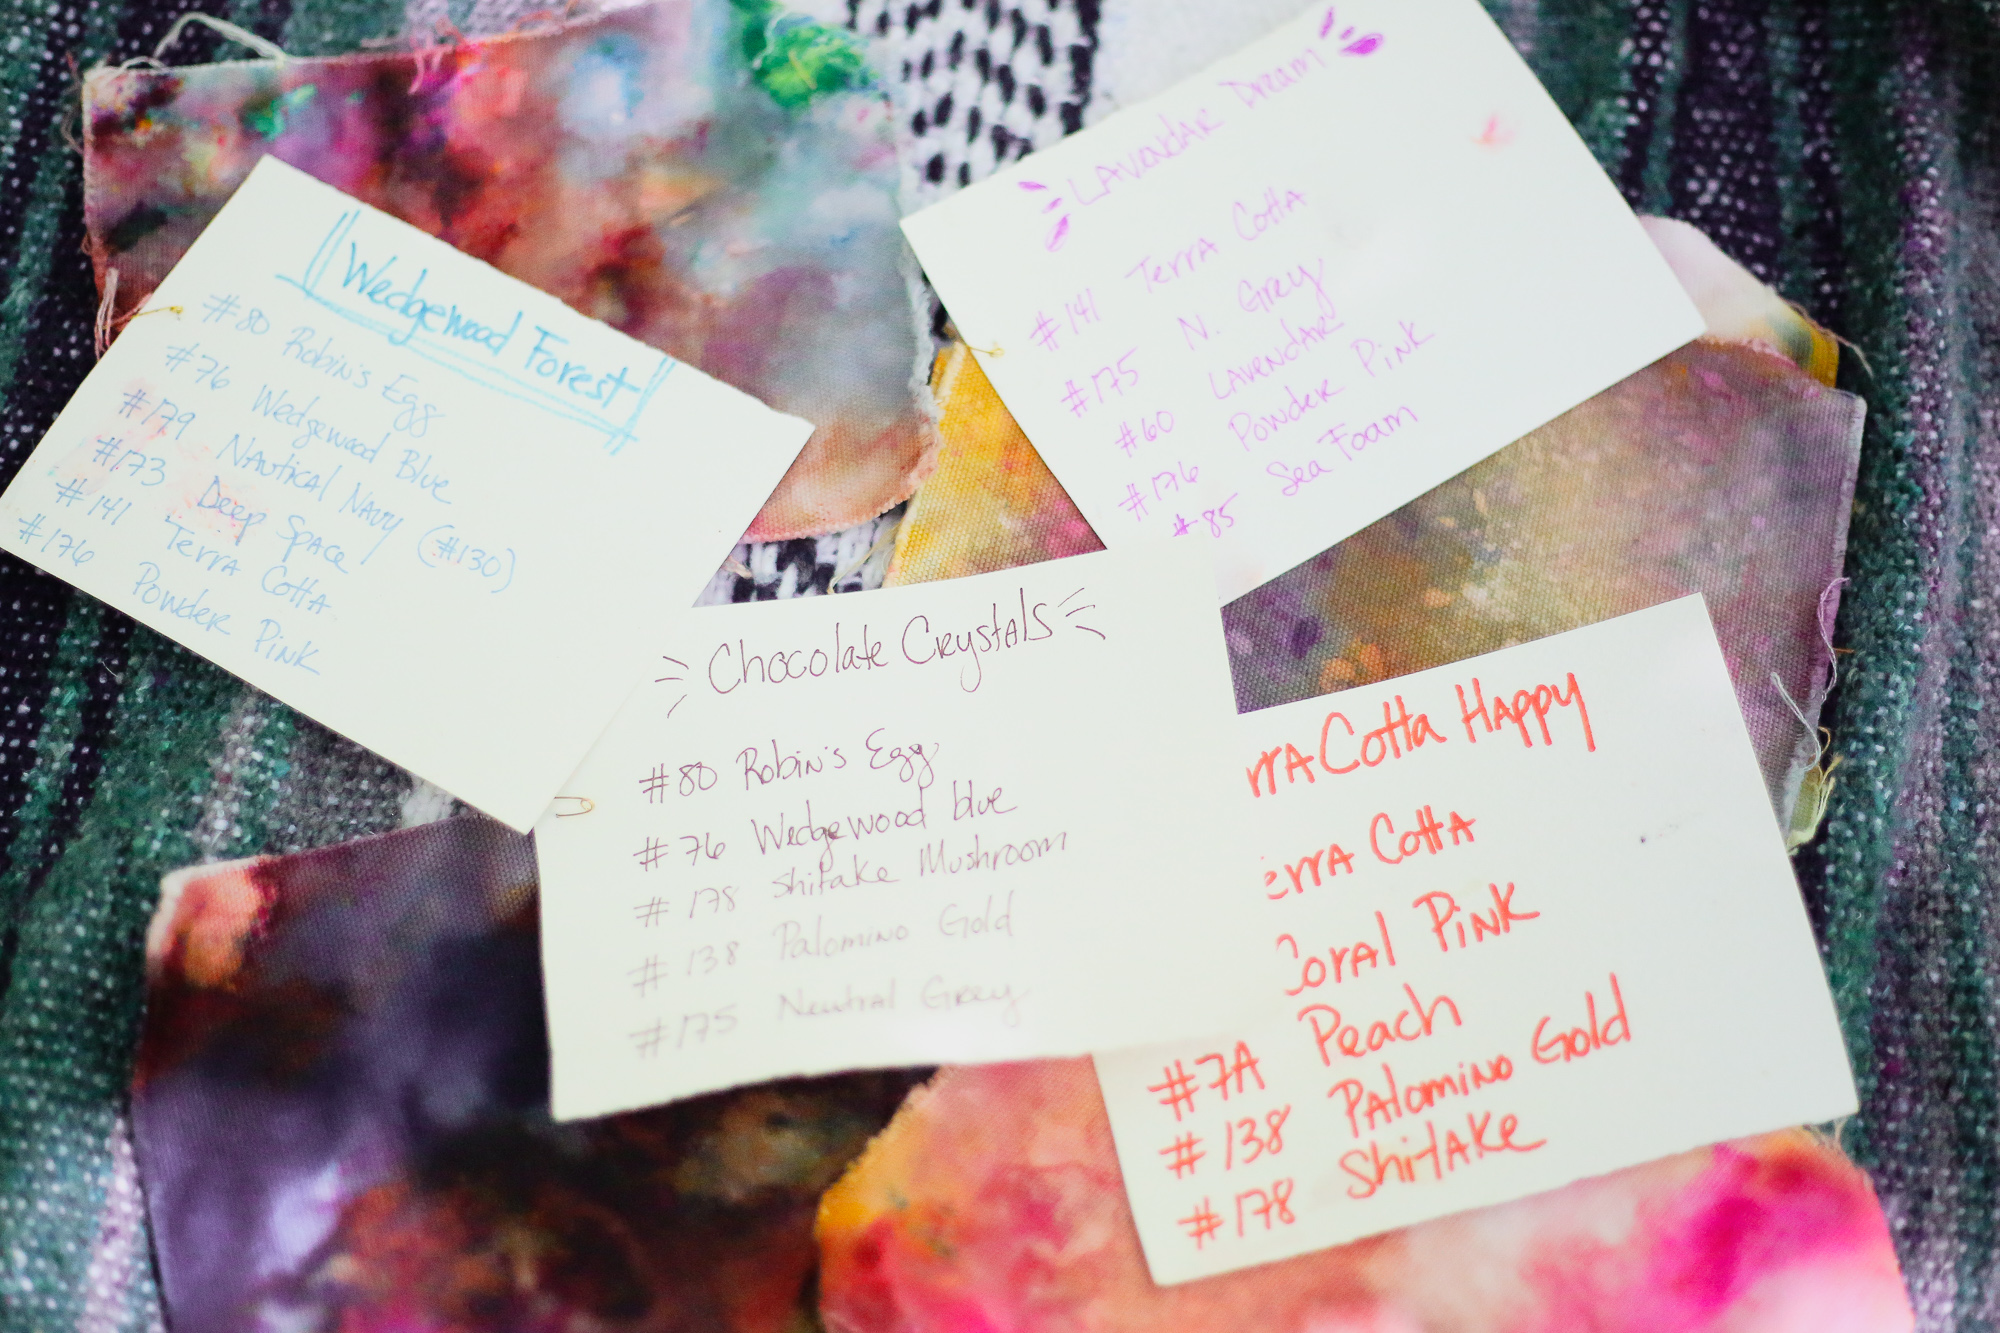 Wedgewood Forest
#80 Robin's Egg
#76 Wedgewood Blue
#179 Nautical Navy (#130)
#173 Deep Space
#141 Terra Cotta
#176 Powder Pink
Lavendar Dream
#141 Terra Cotta
#175 N. Grey
#60 Lavendar
#176 Powder Pink
#85 Sea Foam
Chocolate Crystals
#80 Robin's Egg
#76 Wedgewood blue
#178 Shitake Mushroom
#138 Palomino Gold
#175 Neutral Grey
rra Cotta Happy
erra Cotta
Coral Pink
#7A Peach
#138 Palomino Gold
#178 Shitake